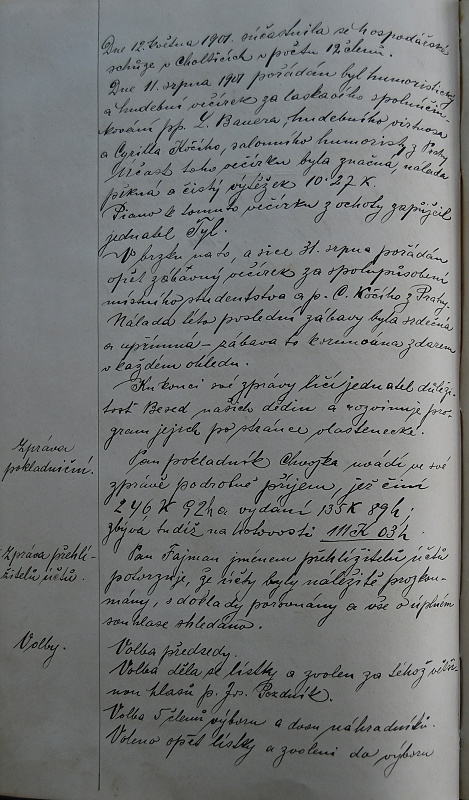 Dne 12. května 1901. súčastnila se hospodářské
schůze v Cholticích v počtu 12 členů.
Dne 11. srpna 1901 pořádán byl humoristický
a hudební večírek za laskavého spoluúčin-
kování pp. L. Bauera, hudebního virtuosa
a Cyrilla Kočího, salonního humoristy z Prahy
Účast toho večírku byla značná, nálada
pěkná a čistý výtěžek 10·27 K.
Piano k tomuto večírku z ochoty zapůjčil
jednatel Tyl.
V brzku na to, a sice 31. srpna pořádán
opět zábavný večírek za spolupůsobení
místního studentstva a p. C. Kočího z Prahy.
Nálada této poslední zábavy byla srdečná
a upřímná – zábava ta korunována zdarem
v každém ohledu.
Ku konci své zprávy líčí jednatel důleži-
tost Besed našich dědin a rozvinuje pro-
gram jejich po stránce vlastenecké.
Zpráva
pokladniční.
Pan pokladník Chvojka uvádí ve své
zprávě podrobně příjem, jež činí
246 K 92 h a vydání 135 K 89 h;
zbývá tudíž na hotovosti 111 K 03 h.
Zpráva přehlí-
žitelů účtů.
Pan Fajman jménem přehlížitelů účtů
potvrzuje, že účty byly náležitě prozkou-
mány, s doklady porovnány a vše v úplném
souhlase shledáno.
Volby.
Volba předsedy.
Volba děla se lístky a zvolen za téhož větši-
nou hlasů p. Jos. Pozdník.
Volba 5 členů výboru a dvou náhradníků.
Voleno opět lístky a zvoleni do výboru